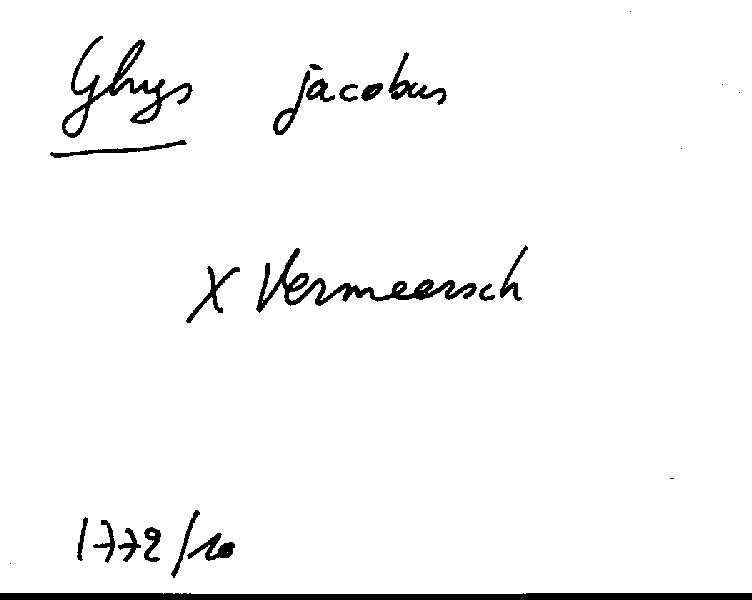 Ghys jacobus
X Vermeersch
1772/10